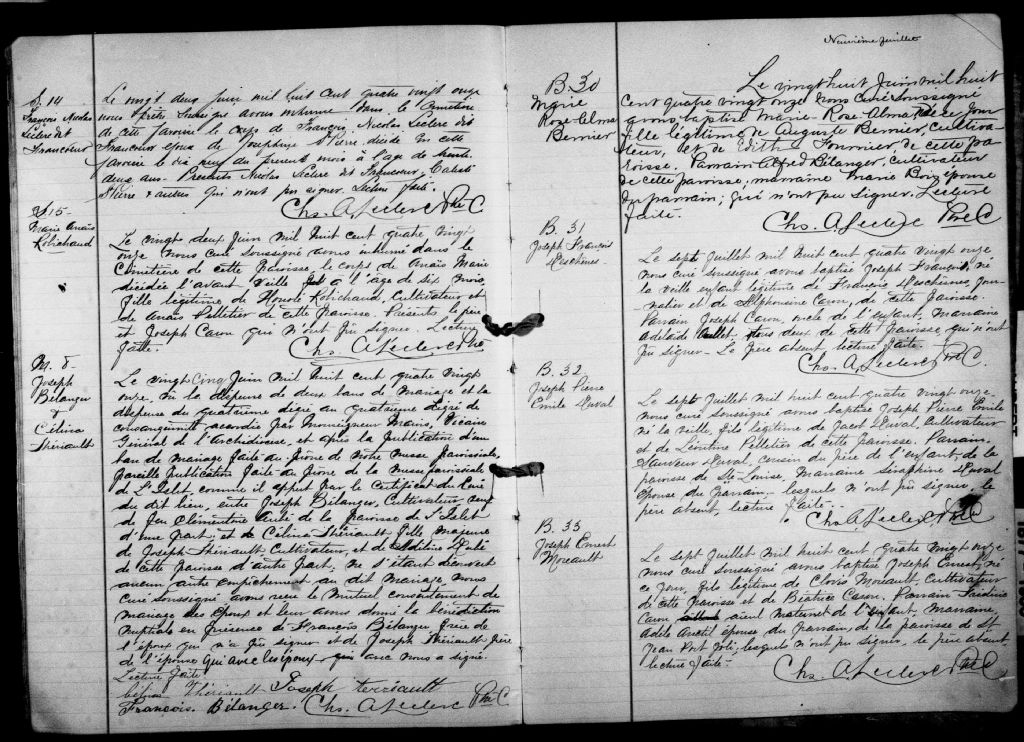 S. 14
François Nicolas
Leclerc dit
Francoeur
Le vingt deux juin mil huit cent quatre vingt onze
nous prêtre soussigné avons inhumé dans le cimetière
de cette paroisse le corps de François Nicolas Leclerc dit
Francoeur époux de Josephine St Pierre décédé en cette
paroisse le dix neuf du présent mois à l'age de trente
deux ans. Présents Nicolas Leclerc dit Francoeur, Calixte
St Pierre & autres qui n'ont pu signer. Lecture faite.
Chs. A. Leclerc Ptre C
S 15
Marie Anaïs
Robichaud
Le vingt deux juin mil huit cent quatre vingt
onze nous curé soussigné avons inhumé dans le
cimetière de cette paroisse le corps de Anaïs Marie
décédée l'avant veille à l'âge de six mois,
fille légitime de Honoré Robichaud, Cultivateur et
de Anaïs Pelletier de cette paroisse. Présents le père
et Joseph Caron qui n'ont pu signer. Lecture
faite.
Chs. A. Leclerc Ptre
M. 8
Joseph
Bélanger
&
Célina
Thériault
Le vingt Cinq Juin mil huit cent quatre vingt
onze, vu la dispense de deux bans de mariage et la
dispense du quatrième degré au quatrième degré de
consanguinité accordée par Monseigneur Marois, Vicaire
Général de l'Archidiocèse, et après la publication d'un
ban de mariage faite au prône de notre messe paroissiale,
pareille publication faite au prône de la messe paroissiale
de L'Islet comme il appert par le certificat du Curé
du dit lieu, entre Joseph Bélanger, Cultivateur, veuf
de feu Clémentine de la paroisse de L'Islet
d'une part; et de Célina Thériault fille majeure
de Joseph Thériault Cultivateur, et de Dubé
de cette paroisse d'autre part, ne s'étant découvert
aucun autre empêchement au dit mariage, nous
curé soussigné avons reçu le mutuel consentement de
mariage des époux et leur avons donné la bénédiction
nuptiale en présence de François Bélanger frère de
l'époux qui n'a pu signer et de Joseph Thériault père
de l'épouse qui avec les époux qui avec nous a signé.
Lecture faite
Célina Thériault Joseph terriault
François. Bélanger. Chs. A. Leclerc Ptre C
Neuvième feuillet
B. 30
Marie
Rose Alma
Bernier
Le vingt huit Juin mil huit
cent quatre vingt onze nous curé soussigné
avons baptisé Marie Rose Alma née ce jour
fille légitime de Auguste Bernier, cultiva-
teur, et de Edith Fournier de cette pa-
roisse. Parrain Alfred Bélanger, cultivateur
de cette paroisse; marraine Marie Bois épouse
du parrain; qui n'ont pu signer. Lecture
faite.
Chs. A. Leclerc Ptre C
B. 31
Joseph François
Deschênes
Le sept Juillet mil huit cent quatre vingt onze
nous curé soussigné avons baptisé Joseph François, né
la veille enfant légitime de François Deschênes Jour-
nalier et de Alphonsine Caron, de cette paroisse.
Parrain Joseph Caron, oncle de l'enfant, Marraine
Adelaïde Ouellet, tous deux de cette paroisse qui n'ont
pu signer. Le père absent lecture faite.
Chs. A. Leclerc Ptre C
B. 32
Joseph Pierre
Emile Duval
Le sept Juillet mil huit cent quatre vingt onze
nous curé soussigné avons baptisé Joseph Pierre Emile
né la veille, fils légitime de Jacob Duval, Cultivateur
et de Léontine Pelletier de cette paroisse. Parrain
Sauveur Duval, cousin du père de l'enfant, de la
paroisse de Ste Louise, Marraine Séraphine Duval
épouse du parrain, lesquels n'ont pu signer, le
père absent, lecture faite.
Chs A. Leclerc Ptre C
B. 33
Joseph Ernest
Morcault
Le sept Juillet mil huit cent quatre vingt onze
nous curé soussigné avons baptisé Joseph Ernest, né
ce jour, fils légitime de Clovis Moriault, Cultivateur
de cette paroisse et de Béatrice Caron. Parrain Frédéric
Caron aieul maternel de l'enfant, Marraine,
Adèle Anctil épouse du parrain, de la paroisse de St
Jean Port Joli; lesquels n'ont pu signer. le père absent.
lecture faite.
Chs. A. Leclerc Ptre C